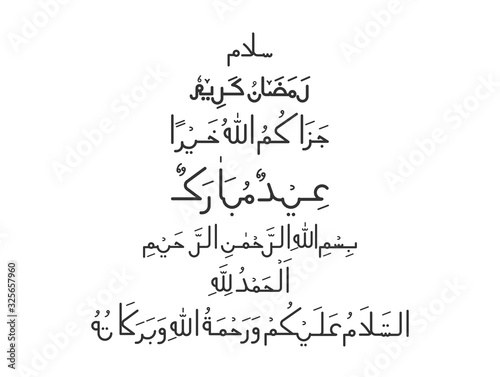 سلام
رَمَضَانُ كَرِيْمٌ
جَزَاكُمُ اللهُ خَيْرًا
عِيْدٌ مُبَارَكٌ
بِسْمِ اللهِ الرَّحْمٰنِ الرَّحِيْمِ
اَلْحَمْدُ لِلَّهِ
السَّلَامُ عَلَيْكُمْ وَرَحْمَةُ اللهِ وَبَرَكَاتُهُ
Adobe Stock | #325657960